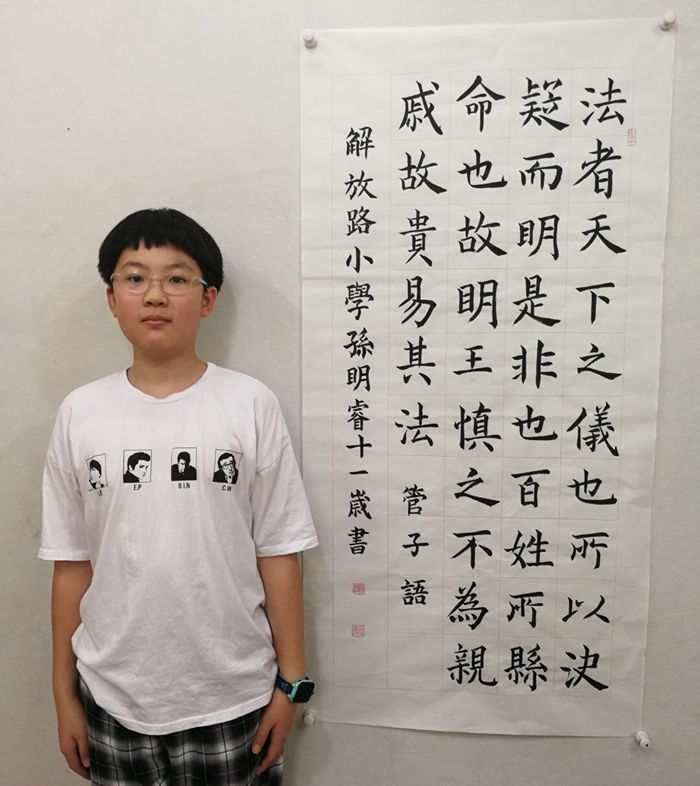 法者天下之儀也所以決
疑而明是非也百姓所縣
命也故明王慎之不為親
戚故貴易其法 管子語
解放路小學孫明睿十一歲書
E.P
B.I.N
C.W